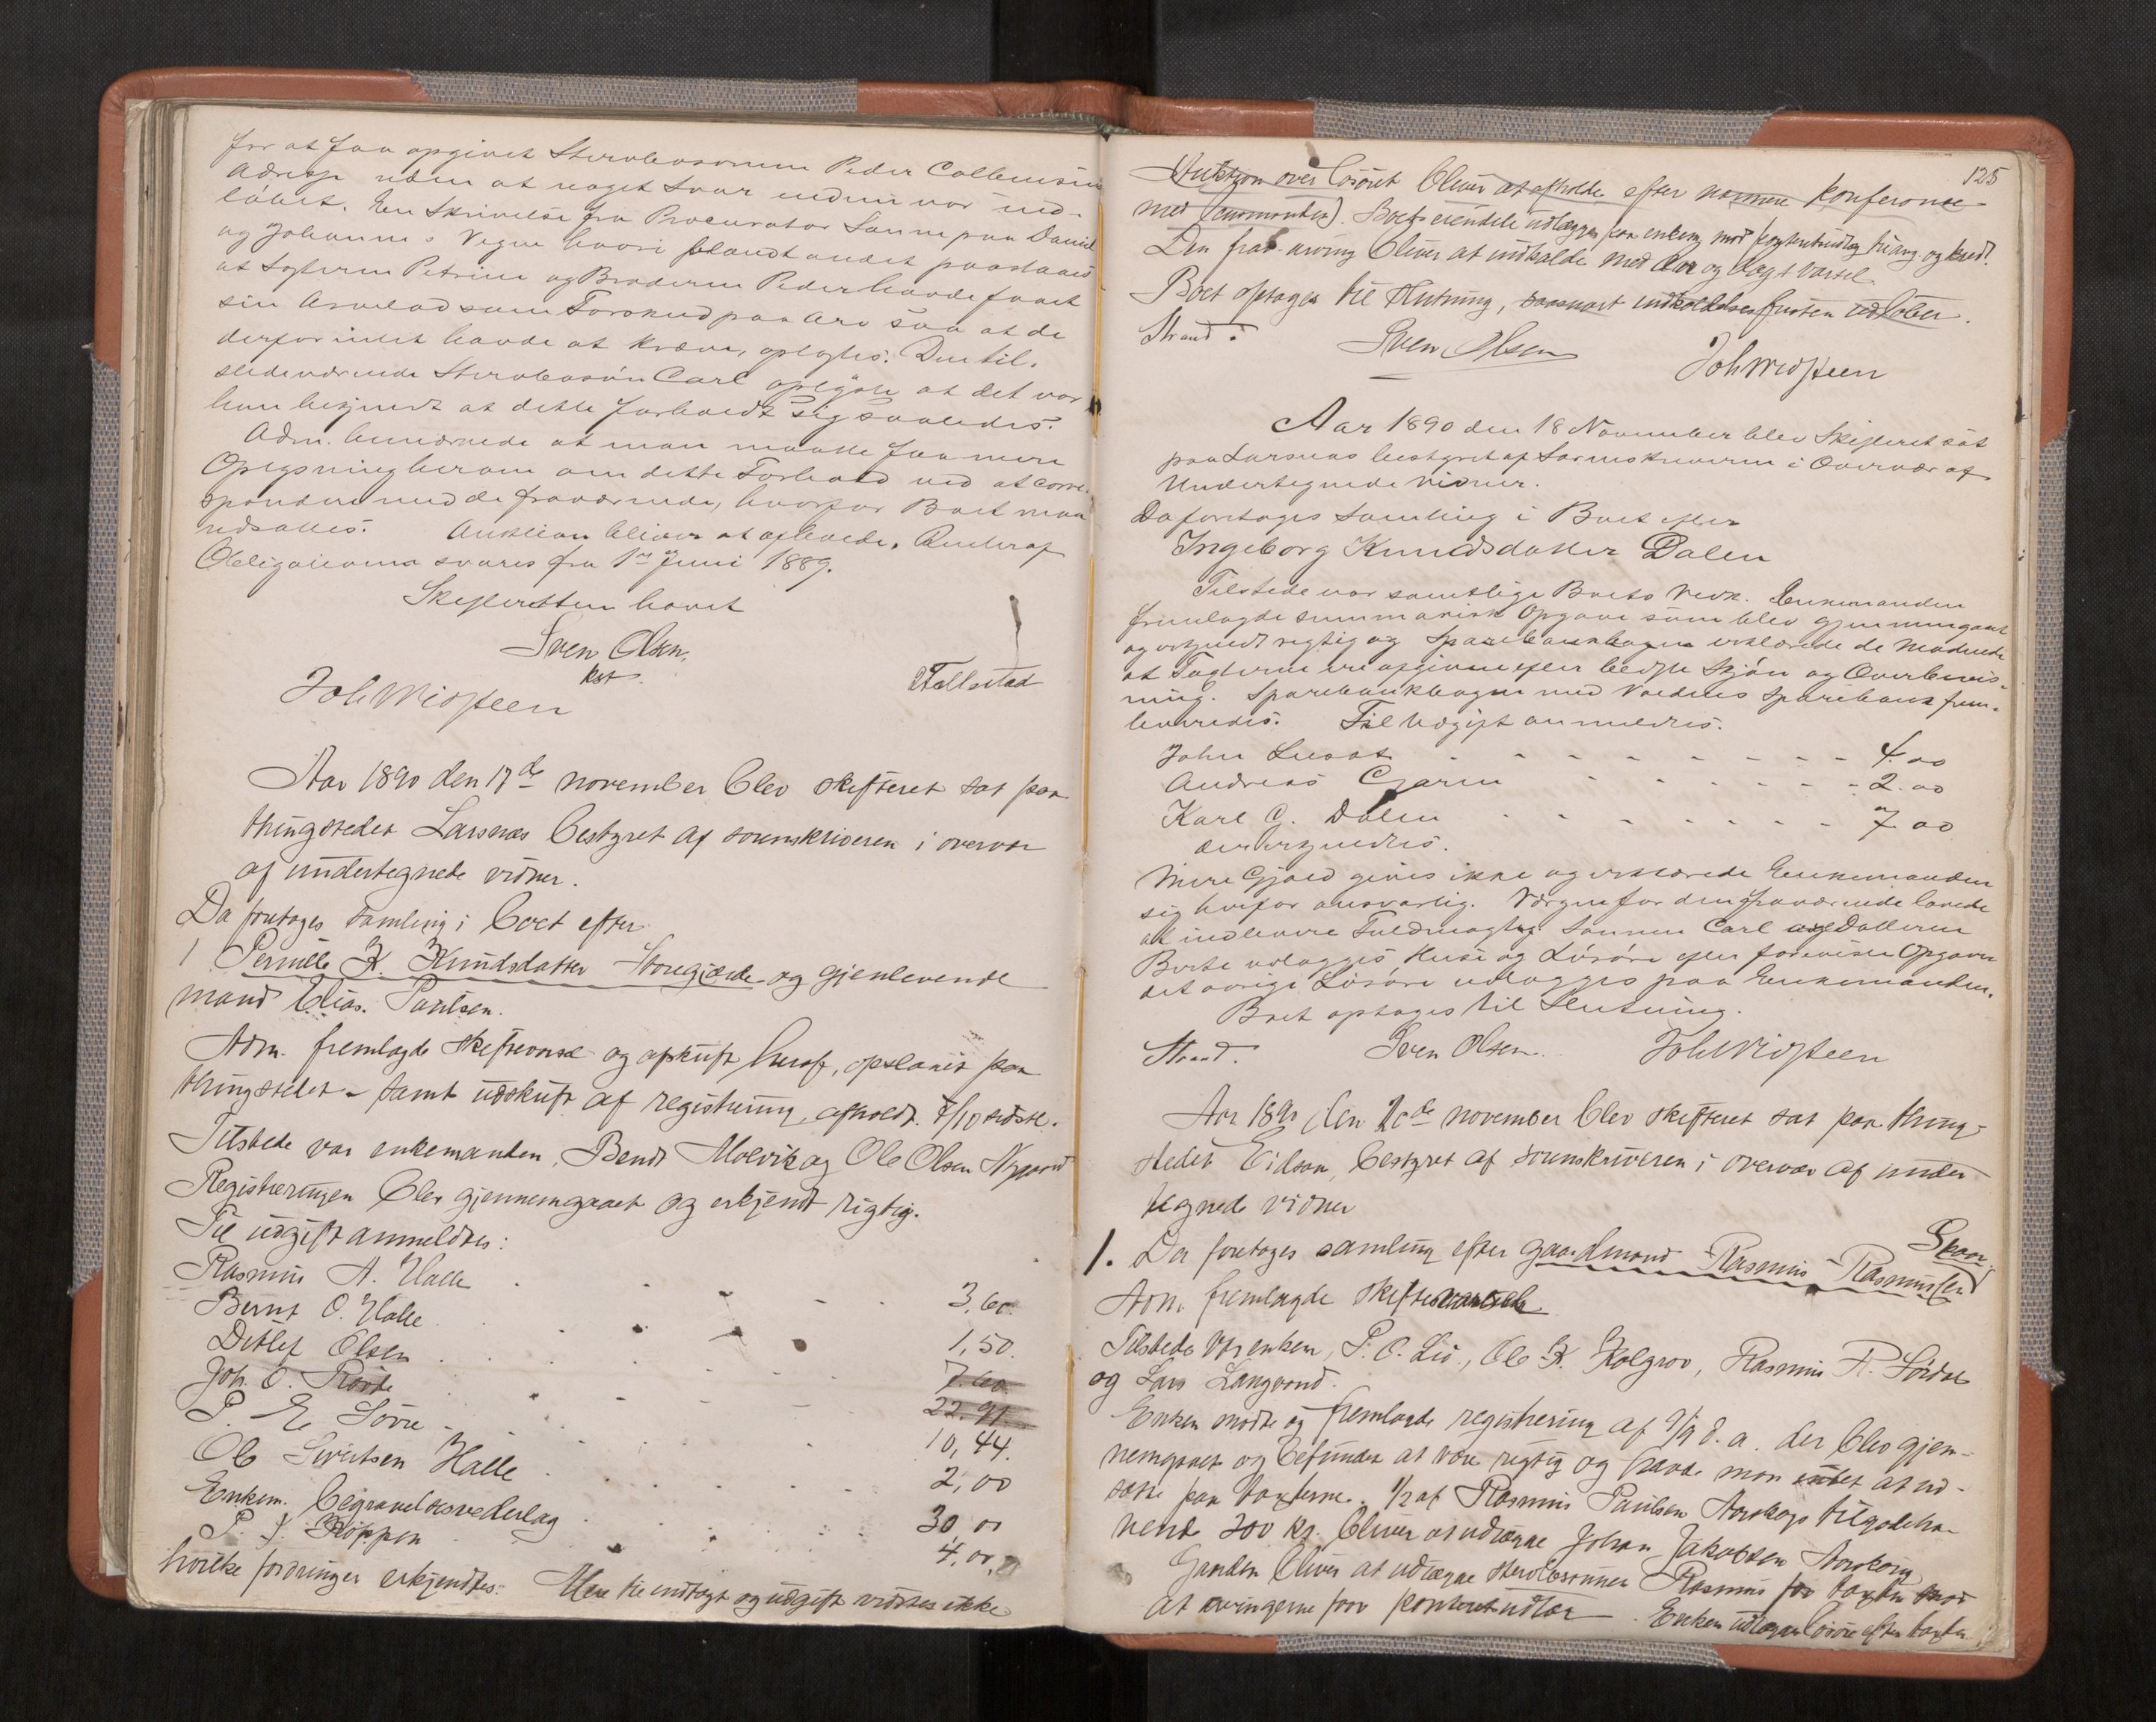 for at faa opgivet Stervbosønnen Peder Collensens
Adresse uden at noget Svar endnu var ind-
løbet. En Skrivelse fra Procurator Sanne paa Daniel
og Johannes Vegne hvori blandt andet paastaaes
at Søsteren Petrine og Broderen Peder havde faaet
sin Arvelod som Forskud paa Arv saa at de
derfor intet havde at kræve, oplæstes. Den til-
stedeværende Stervbosøn Carl oplyste at det var
ham bekjendt at dette forholdt sig saaledes.
Adm. bemærkede at man maatte faa mere
Oplysning herom om dette Forhold ved at corre-
spondere med de fraværende, hvorfor Boet maa
udsættes. Auktion bliver at afholde. Renter af
Obligationen svares fra 1ste Juni 1889.
Skifteretten hævet
Sven Olsen
kst.
Joh Midsteen
Aar 1890 den 17de november blev skifteret sat paa
thingstedet Larsnæs bestyret af sorenskriveren i overvær
af undertegnede vidner.
Da foretages samling i boet efter
1 Pernille K. Knudsdatter Storegjærde og gjenlevende
mand Elias Paulsen.
Adm. fremlagde skiftevarsel og afskrift heraf, opslaaet paa
thingstedet - samt udskrift af registrering, afholdt 7/10 sidstl.
Tilstede var enkemanden, Bendt Molvik og Ole Olsen
Registreringen blev gjennemgaaet og erkjendt rigtig.
Til udgift anmeldtes:
Rasmus A. Halle 3,60.
Bernt O. Halle 1,50.
Detlef Olsen 7.60
Joh. O. 22.91
P. E. Sövre 10,44.
Ole Sivertsen Halle 2,00
Enkem. begravelsesvederlag 30,00
P. J. Koppen 4,00
hvilke fordringer erkjendtes. Mere til indtægt og udgift vidstes ikke
125
Auktion over løsöret bliver at afholde efter nærmere konferense
med (enkemanden). Boets eiendele udlægges paa enkem. mod kontantudlæg til arv. og kred.
Den frav. arving bliver at indkalde med Aar og dags varsel.
Boet optages til slutning, saasnart indkaldelsesfristen udløber.
Strand. Sven Olsen Joh Midsteen
Aar 1890 den 18 November blev Skifteret sat
paa Larsnæs bestyret af Sorenskriveren i Overvær af
Undertegnede vidner.
Da foretages Samling i Boet efter
Ingeborg Knudsdatter Dalen
Tilstede var samtlige Boets Vedk. Enkemanden
fremlagde summarisk Opgave som blev gjennemgaaet
og erkjendt rigtig og Sparebankbogen erklærede de Mødende
at Taxterne ere opgivne efter bedste Skjøn og Overbevis-
ning. Sparebankbogen med Voldens Sparebank frem-
leveredes. Til Udgift anmeldtes.
John 4.00
Andreas Gjærn 2.00
Karl C. Dalen 7.00
der erkjendtes.
Mere Gjæld gives ikke og erklærede Enkemanden
sig herfor ansvarlig. Værgen for den fraværende lovede
at indlevere Fuldmagt. Sønnen Carl og Datteren
Berte udlægges Huse og Løsøre efter foreviste Opgave
det øvrige Løsøre udlægges paa Enkemanden.
Boet optages til Slutning.
Strand. Sven Olsen. Joh Midsteen
Aar 1890 den 20de november blev skifteret sat paa thing-
stedet Eidsaa, bestyret af sorenskriveren i overvær af under
tegnede vidner
1. Da foretages samling efter gaardmand Rasmus Rasmussen Skaar
Adm. fremlagde skiftevarsel.
Tilstede var enken, P. O. Lid, Ole K. Kolgrov, Rasmus R. Sördal
og Lars Langvand.
Enken mødte og fremlagde registrering af 9/9 d. a. der blev gjen-
nemgaaet og befundet at være rigtig og havde man intet at ud-
sætte paa taxterne. 1/2 af Rasmus Paulsen Aarskogs tilgodeha-
vende 200 kr. bliver at udlægge Johan Jakobsen Aarskog
Gaarden bliver at udlægge stervbosønnen Rasmus for taxten mod
at arvingerne faar kontantudlæg. Enken udlægges løsøre efter taxten